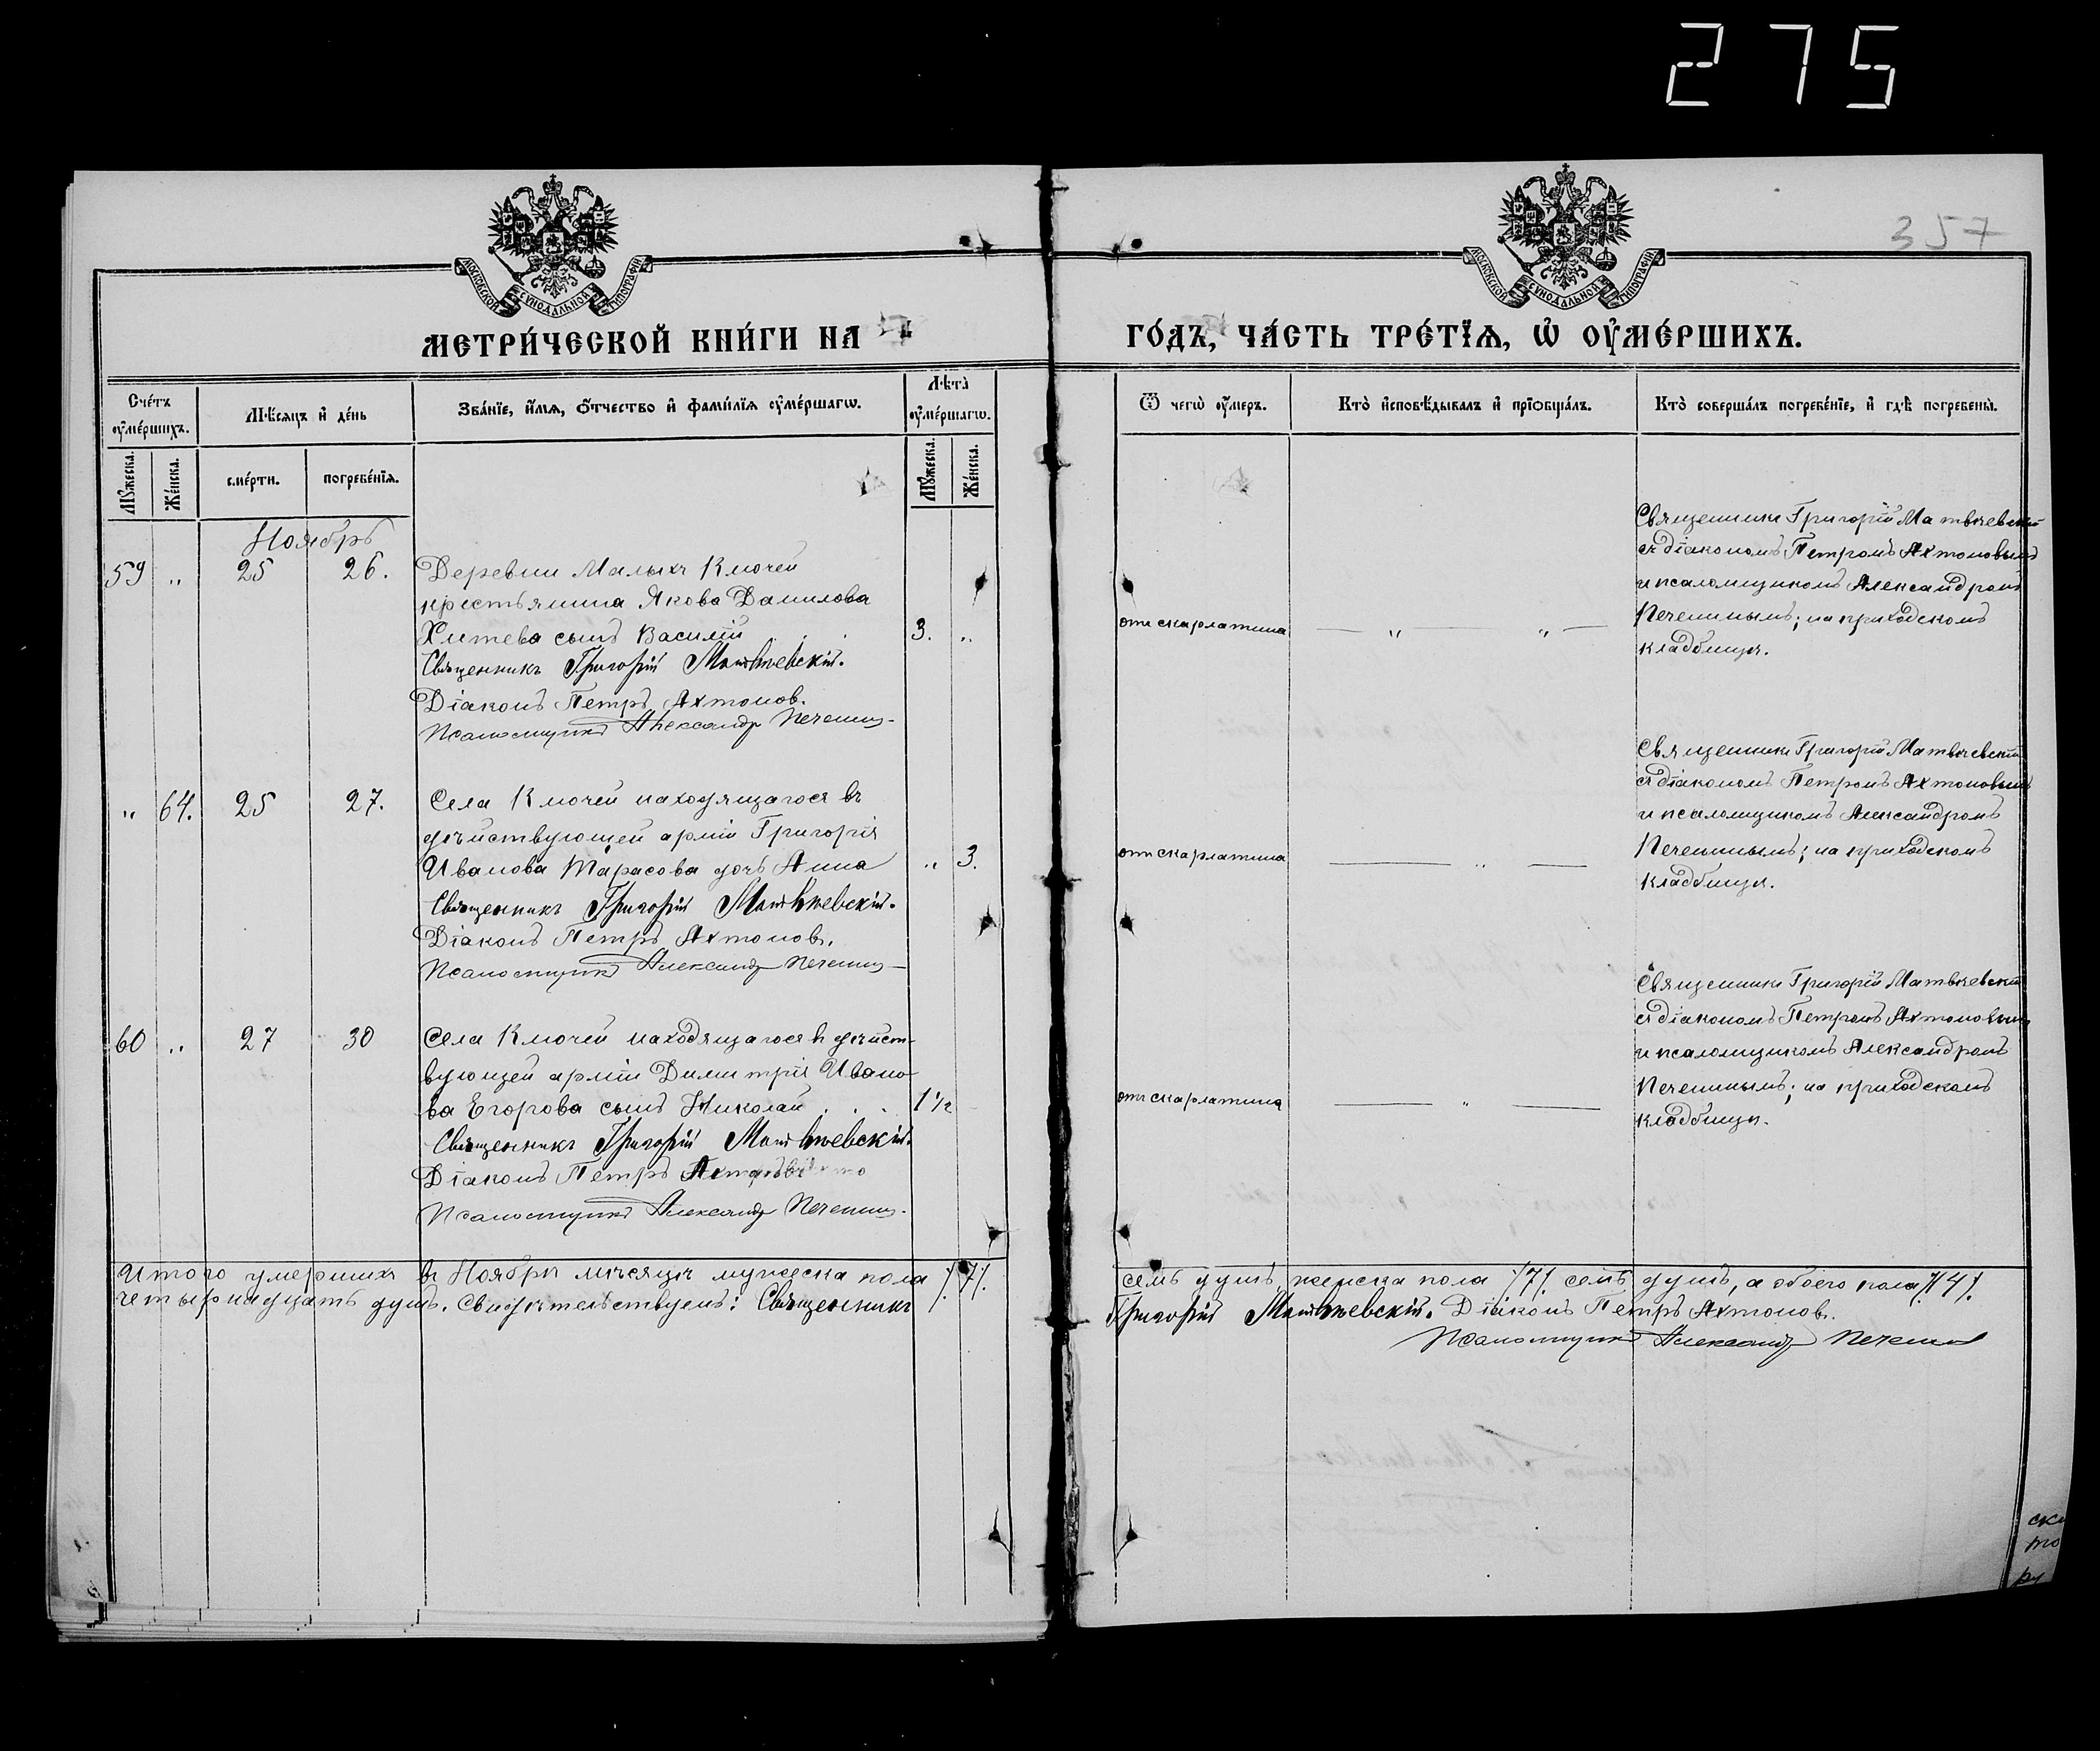 275
357
МОСКОВСКОЙ СѴНОДАЛЬНОЙ ТИПОГРАФІИ
МОСКОВСКОЙ СѴНОДАЛЬНОЙ ТИПОГРАФІИ
МЕТРИ́ЧЕСКОЙ КНИ́ГИ НА
ГО́ДЪ, ЧА́СТЬ ТРЕ́ТЇѦ, Ѡ҆ ОУ҆МЕ́РШИХЪ.
Сче́тъ оу҆ме́ршихъ.
Мѣ́сяцъ и҆ де́нь
Зва́нїе, и҆́мѧ, ѻ҆́тчество и҆ фами́лїѧ оу҆ме́ршагѡ.
Лѣ́та̀ оу҆ме́ршагѡ.
Ѿ чегѡ̀ оу҆́меръ.
Кто̀ и҆сповѣ́дывалъ и҆ прїѻбща́лъ.
Кто̀ соверша́лъ погребе́нїе, и҆ гдѣ̀ погребены̀.
Мꙋ́жеска.
Же́нска.
сме́рти.
погребе́нїѧ.
Мꙋ́жеска.
Же́нска.
Ноябрь
59 „ 25 26.
Деревни Малыхъ Ключей
крестьянина Якова Данилова
Хитева сынъ Василій . . . 3. „
Священникъ Григорій Матвѣевскій.
Діаконъ Петръ Ахтонов.
Псаломщикъ Александр Печенин
отъ скарлатина
„ „
Священникъ Григорій Матвѣевскій
съ діакономъ Петромъ Ахтоновымъ
и псаломщикомъ Александромъ
Печенинымъ; на приходскомъ
кладбищѣ.
„ 64. 25 27.
Села Ключей находящагося въ
дѣйствующей арміи Григорія
Иванова Тарасова дочь Анна „ 3.
Священникъ Григорій Матвѣевскій.
Діаконъ Петръ Ахтоновъ.
Псаломщикъ Александр Печенин
отъ скарлатина
„
Священникъ Григорій Матвѣевскій
съ діакономъ Петромъ Ахтоновымъ
и псаломщикомъ Александромъ
Печенинымъ; на приходскомъ
кладбищѣ.
60 „ 27 30
Села Ключей находящагося в дѣйст-
вующей арміи Димитрія Ивано-
ва Егорова сынъ Николай . . . 1 1/2
Священникъ Григорій Матвѣевскій.
Діаконъ Петръ
Псаломщикъ Александр Печенин.
отъ скарлатина
„
Священникъ Григорій Матвѣевскій
съ діакономъ Петромъ Ахтоновымъ
и псаломщикомъ Александромъ
Печенинымъ; на приходскомъ
кладбищѣ.
Итого умершихъ въ Ноябрѣ мѣсяцѣ мужеска пола /7/. семь душъ, женска пола /7/ семь душъ, а обоего пола /14/.
четырнадцать душъ. Свидѣтельствуемъ: Священникъ Григорій Матвѣевскій. Діаконъ Петръ Ахтонов.
Псаломщикъ Александр Печенин